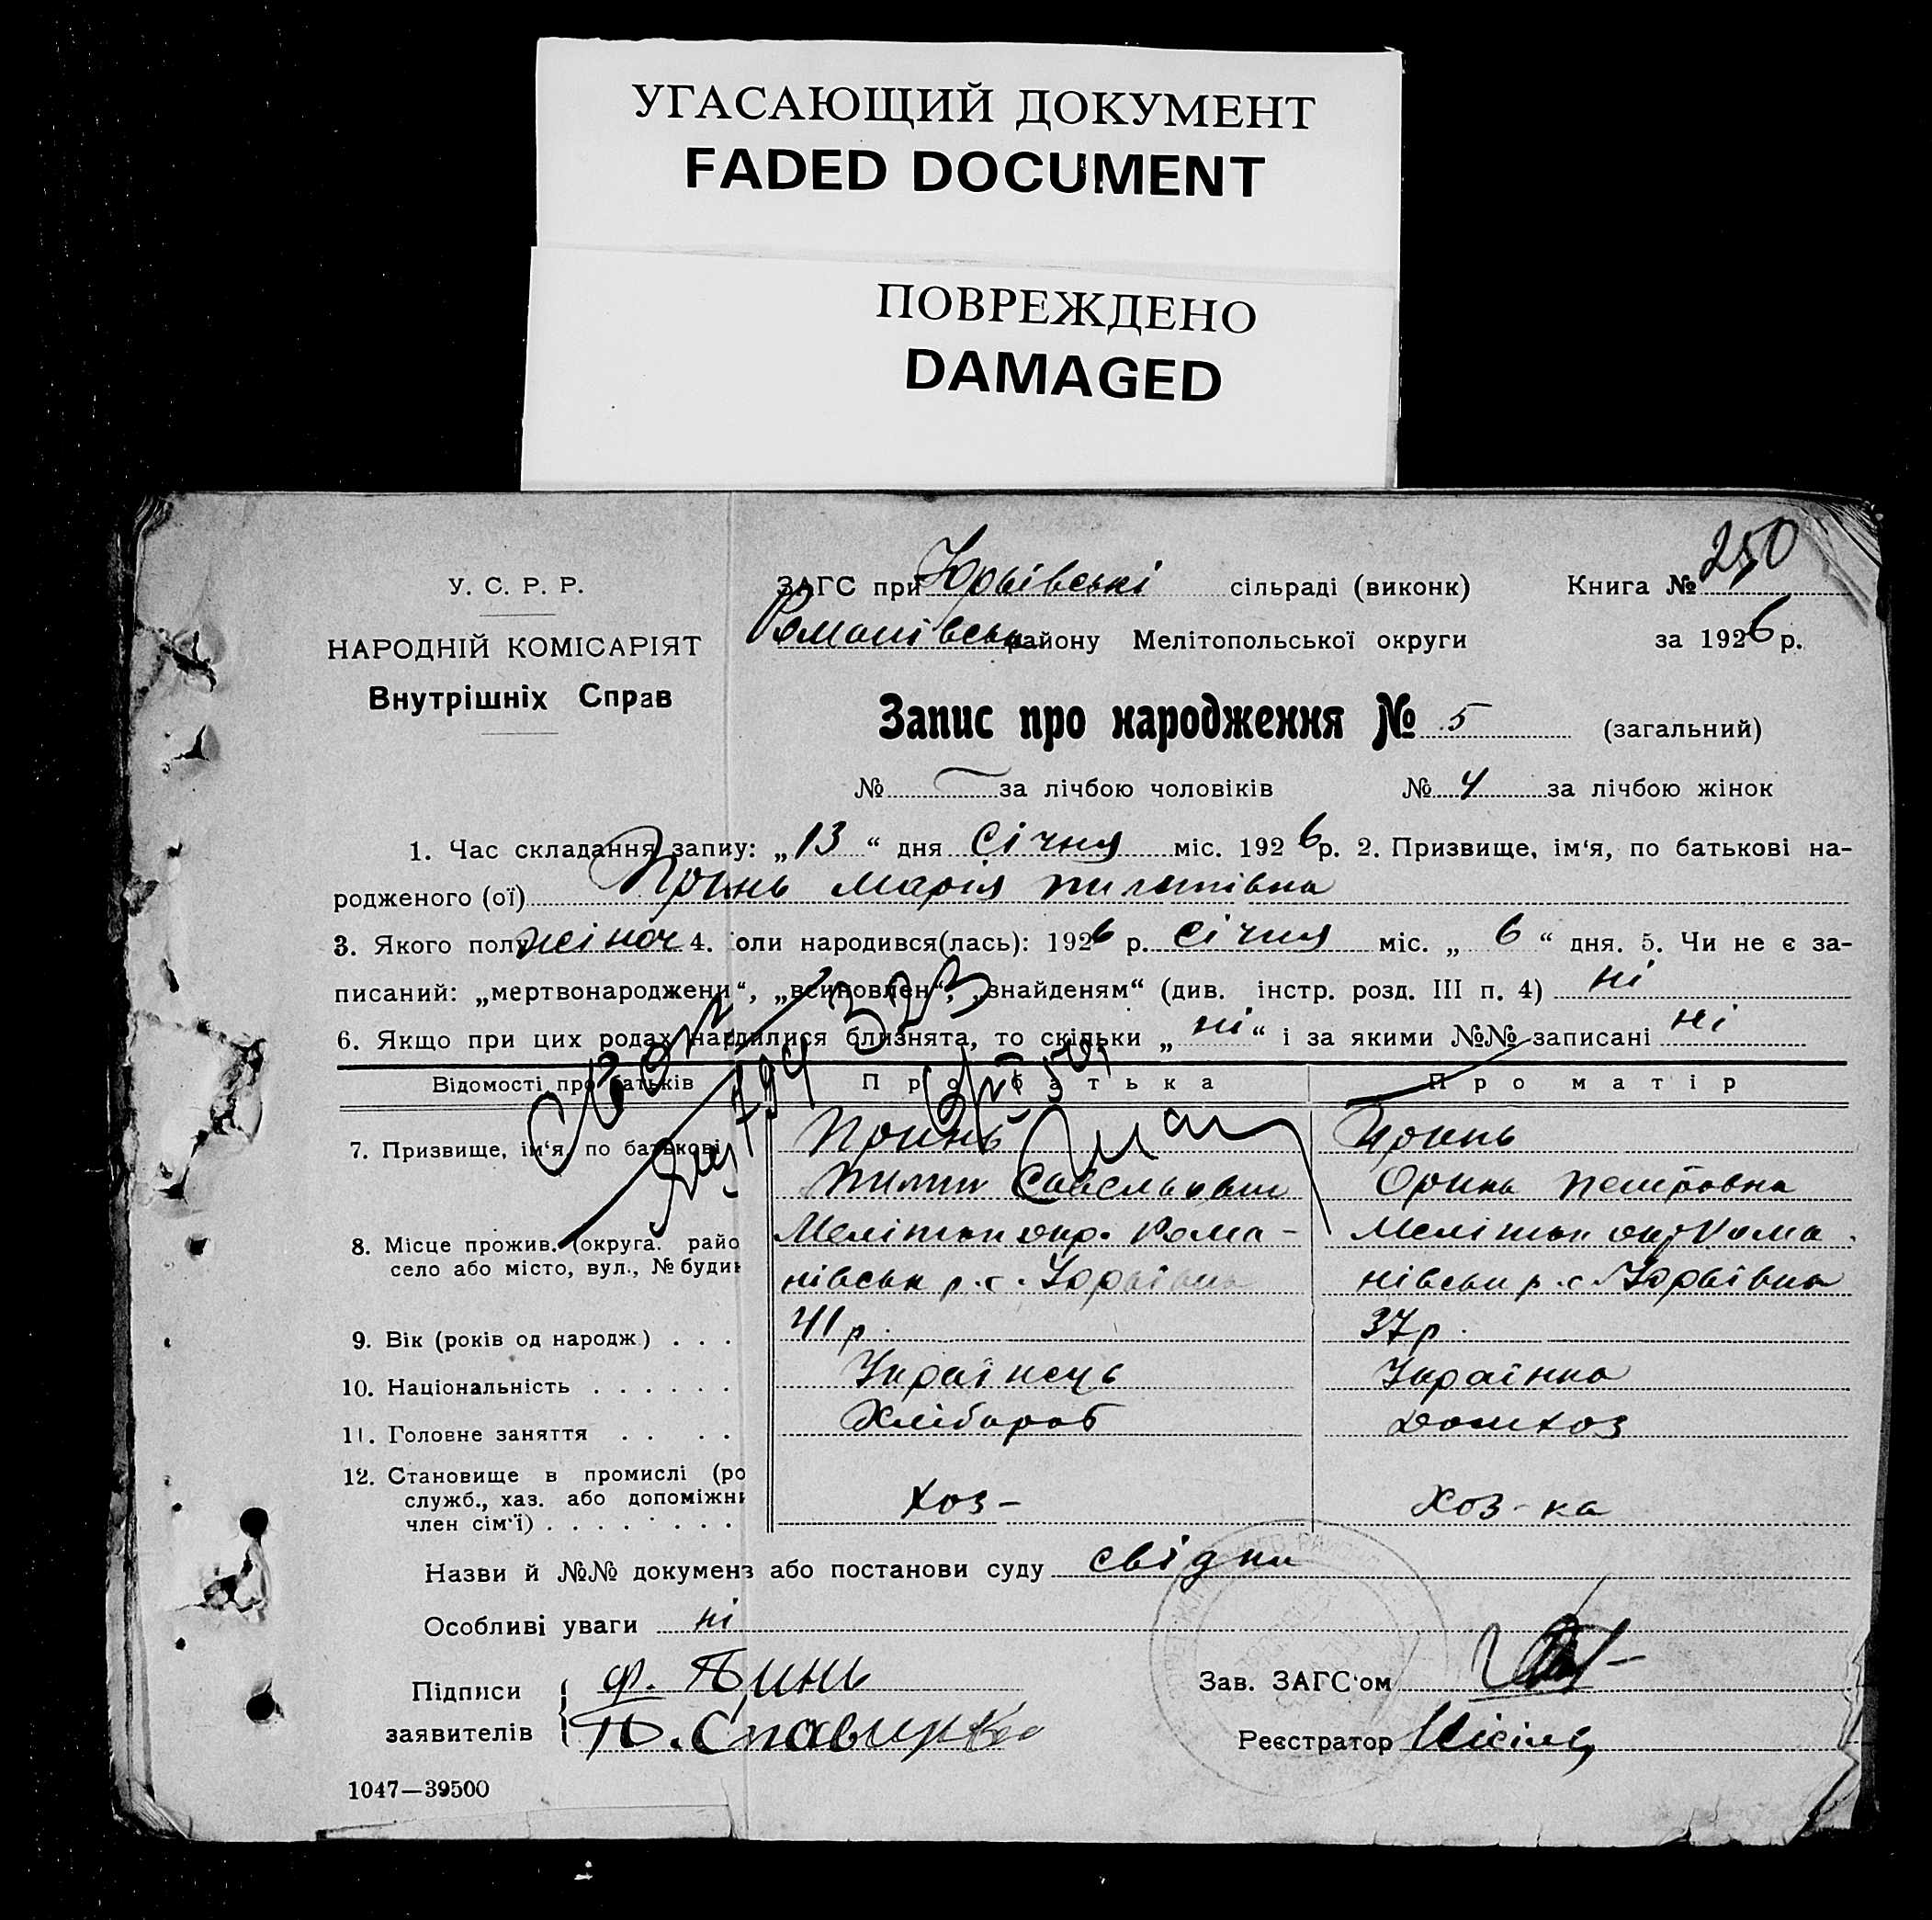 УГАСАЮЩИЙ ДОКУМЕНТ
FADED DOCUMENT
ПОВРЕЖДЕНО
DAMAGED
У. С. Р. Р.
НАРОДНІЙ КОМІСАРІЯТ
Внутрішніх Справ
ЗАГС при Юрьівські сільраді (виконк) Книга № 250
Романівськ району Мелітопольської округи за 1926 р.
Запис про народження № 5 (загальний)
№ за лічбою чоловіків № 4 за лічбою жінок
1. Час складання запиу: „13“ дня Січня міс. 1926 р. 2. Призвище, ім‘я, по батькові на-
родженого (ої) Принь Марія Пилипівна
3. Якого полу жіноч 4. оли народився(лась): 1926 р. Січня міс. „6“ дня. 5. Чи не є за-
писаний: „мертвонароджени“, „всиновлен“, „знайденям“ (див. інстр. розд. III п. 4) ні
6. Якщо при цих родах нардилися близнята, то скільки „ні“ і за якими №№ записані ні
Відомості про батьків Про батька Про матір
7. Призвище, ім‘я, по батькові Принь Принь
Пилип Савельович Орина Петровна
8. Місце прожив. (округа. райо Меліт‌оп окр. Рома- Мелітоп окр Рома
село або місто, вул., № будин нівськ р. с. Юрьівка нівськ р. с. Юрьівка
9. Вік (років од народж) . . . 41 р. 37 р.
10. Національність . . . . . . Українець Українка
11. Головне заняття . . . . Хлібороб Домхоз
12. Становище в промислі (ро
служб., хаз. або допоміжни хоз- хоз-ка
член сім‘ї) . . . . . . . .
Назви й №№ докуменз або постанови суду свідки
Особливі уваги ні
Підписи Ф. Зав. ЗАГС‘ом
заявителів П. Реєстратор
1047—39500